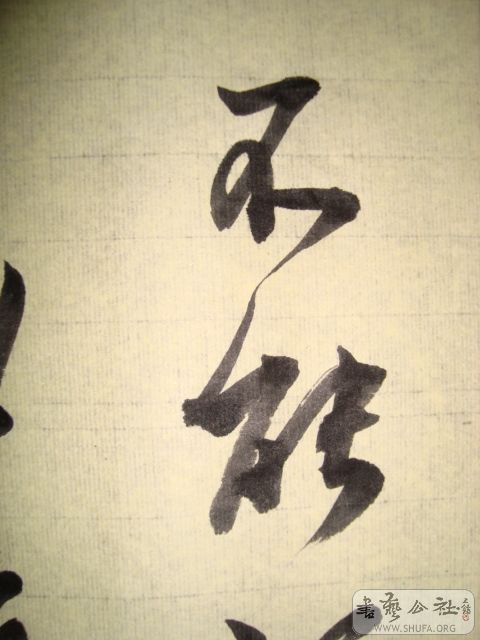 不能
書藝公社
WWW.SHUFA.ORG